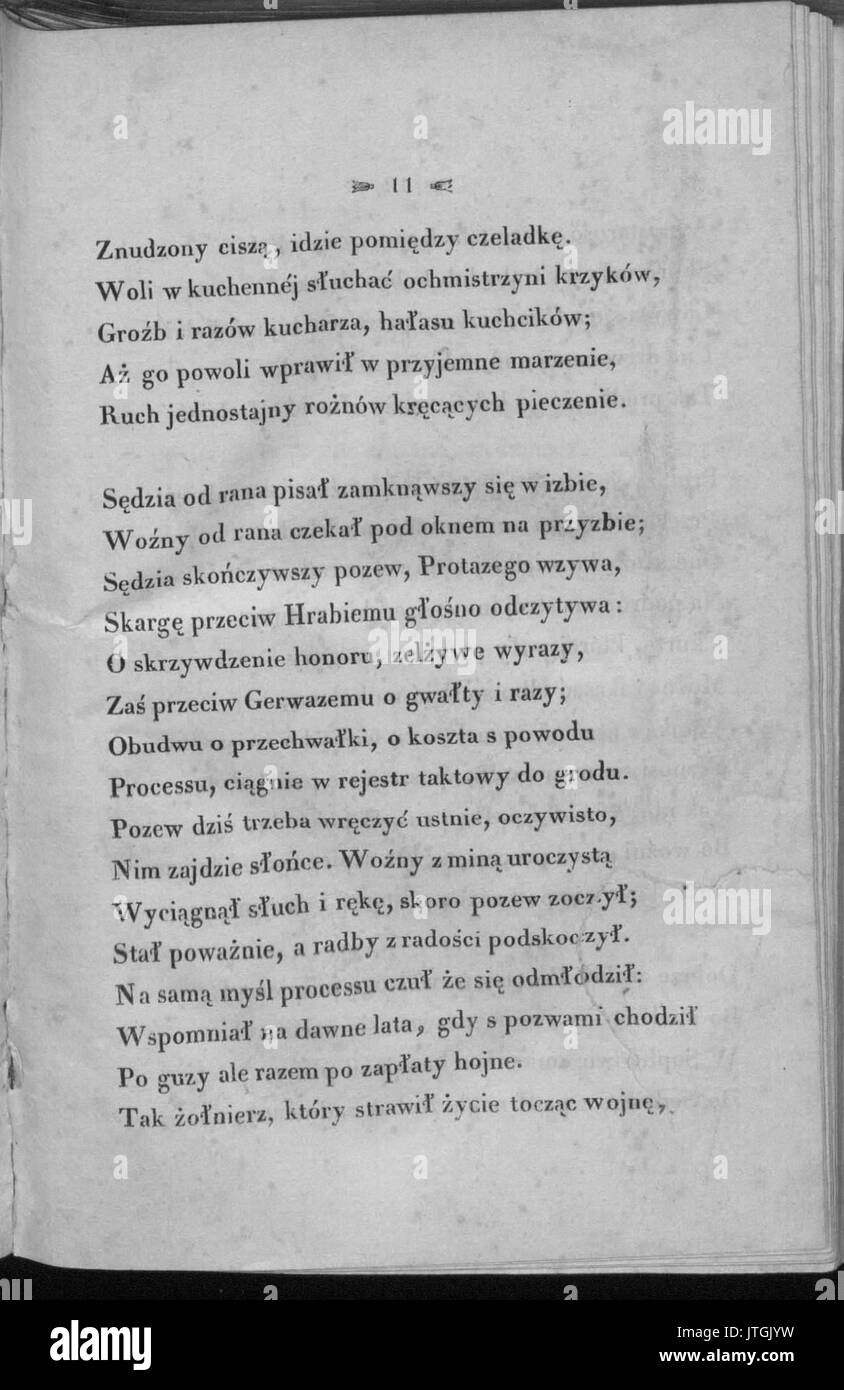 11
Znudzony ciszą, idzie pomiędzy czeladkę.
Woli w kuchennéj słuchać ochmistrzyni krzyków,
Groźb i razów kucharza, hałasu kuchcików;
Aż go powoli wprawił w przyjemne marzenie,
Ruch jednostajny rożnów kręcących pieczenie.
Sędzia od rana pisał zamknąwszy się w izbie,
Woźny od rana czekał pod oknem na przyzbie;
Sędzia skończywszy pozew, Protazego wzywa,
Skargę przeciw Hrabiemu głośno odczytywa:
O skrzywdzenie honoru, zelżywe wyrazy,
Zaś przeciw Gerwazemu o gwałty i razy;
Obudwu o przechwałki, o koszta s powodu
Processu, ciągnie w rejestr taktowy do grodu.
Pozew dziś trzeba wręczyć ustnie, oczywisto,
Nim zajdzie słońce. Woźny z miną uroczystą
Wyciągnął słuch i rękę, skoro pozew zoczył;
Stał poważnie, a radby z radości podskoczył.
Na samą myśl processu czuł że się odmłodził:
Wspomniał na dawne lata, gdy s pozwami chodził
Po guzy ale razem po zapłaty hojne.
Tak żołnierz, który strawił życie tocząc wojnę,
alamy
alamy
alamy
a
a
a
a
a
a
a
a
alamy stock photo
JTGJYW
www.alamy.com